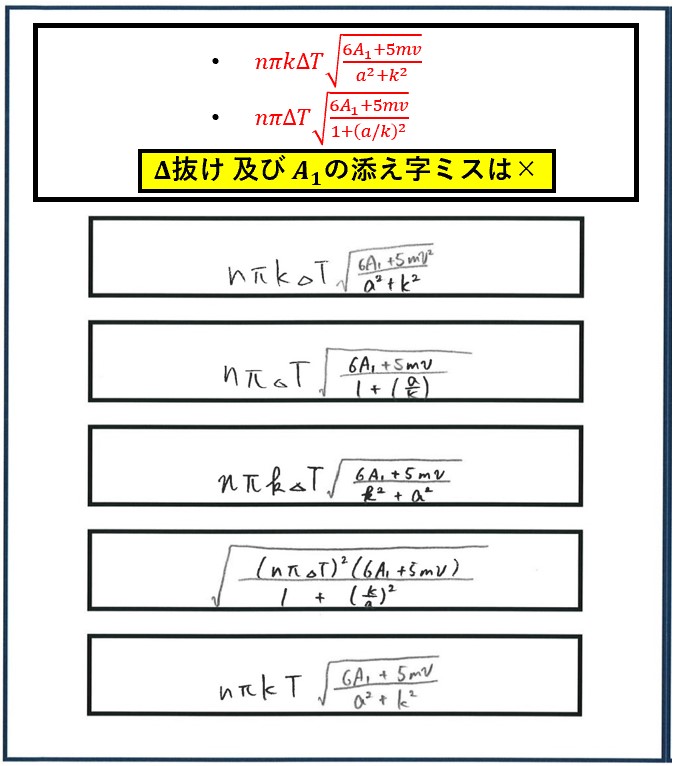 • nπkΔT√((6A₁+5mv)/(a²+k²))
• nπΔT√((6A₁+5mv)/(1+(a/k)²))
Δ抜け 及び A₁の添え字ミスは×
nπkΔT√((6A₁+5mv²)/(a²+k²))
nπΔT√((6A₁+5mv)/(1+(a/k)))
nπkΔT√((6A₁+5mv)/(k²+a²))
√(((nπΔT)²(6A₁+5mv))/(1+(k/a)²))
nπkT√((6A₁+5mv)/(a²+k²))